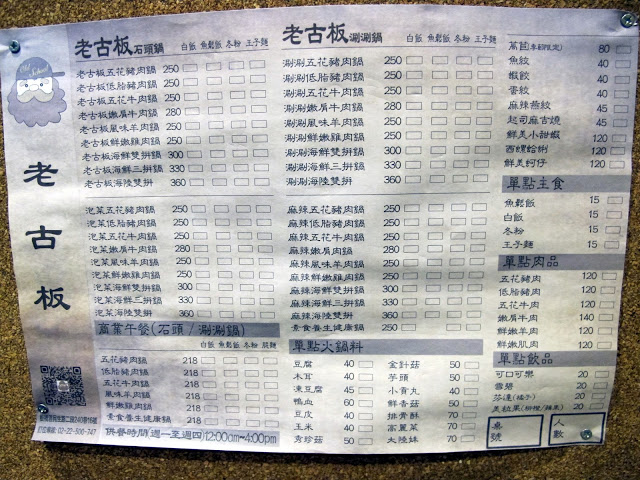 老古板
老古板石頭鍋 白飯 魚鬆飯 冬粉 王子麵
老古板五花豬肉鍋 250
老古板低脂豬肉鍋 250
老古板五花牛肉鍋 250
老古板嫩肩牛肉鍋 280
老古板風味羊肉鍋 250
老古板鮮嫩雞肉鍋 250
老古板海鮮雙拼鍋 300
老古板海鮮三拼鍋 330
老古板海陸雙拼 360
泡菜五花豬肉鍋 250
泡菜低脂豬肉鍋 250
泡菜五花牛肉鍋 250
泡菜嫩肩牛肉鍋 280
泡菜風味羊肉鍋 250
泡菜鮮嫩雞肉鍋 250
泡菜海鮮雙拼鍋 300
泡菜海鮮三拼鍋 330
泡菜海陸雙拼 360
商業午餐(石頭/涮涮鍋)
白飯 魚鬆飯 冬粉
五花豬肉鍋 218
低脂豬肉鍋 218
五花牛肉鍋 218
風味羊肉鍋 218
鮮嫩雞肉鍋 218
素食養生健康鍋 218
供餐時間 週一至週四/12:00am~4:00pm
老古板涮涮鍋 白飯 魚鬆飯 冬粉 王子麵
涮涮五花豬肉鍋 250
涮涮低脂豬肉鍋 250
涮涮五花牛肉鍋 250
涮涮嫩肩牛肉鍋 280
涮涮風味羊肉鍋 250
涮涮鮮嫩雞肉鍋 250
涮涮海鮮雙拼鍋 300
涮涮海鮮三拼鍋 330
涮涮海陸雙拼 360
麻辣五花豬肉鍋 250
麻辣低脂豬肉鍋 250
麻辣五花牛肉鍋 250
麻辣嫩肩牛肉鍋 280
麻辣風味羊肉鍋 250
麻辣鮮嫩雞肉鍋 250
麻辣海鮮雙拼鍋 300
麻辣海鮮三拼鍋 330
麻辣海陸雙拼 360
素食養生健康鍋 250
單點火鍋料
豆腐 40 金針菇 50
木耳 40 芋頭 50
凍豆腐 45 小貢丸 40
鴨血 60 鮮香菇 50
豆皮 50 排骨酥 70
玉米 40 高麗菜 70
秀珍菇 50 大陸妹 50
萵苣(季節限定) 80
魚餃 40
蝦餃 40
蛋餃 40
麻辣燕餃 45
起司麻吉燒 45
鮮美小甜蝦 120
鮮美蚵仔 120
單點主食
魚鬆飯 15
白飯 15
冬粉 15
王子麵 15
單點肉品
五花豬肉 120
低脂豬肉 120
五花牛肉 120
嫩肩牛肉 140
鮮嫩羊肉 120
鮮嫩肌肉 120
單點飲品
可口可樂 20
雪碧 20
芬達(橘子) 20
美粒果(柳橙/蘋果) 20
桌號
人數
訂位專線: 02-22-500-747